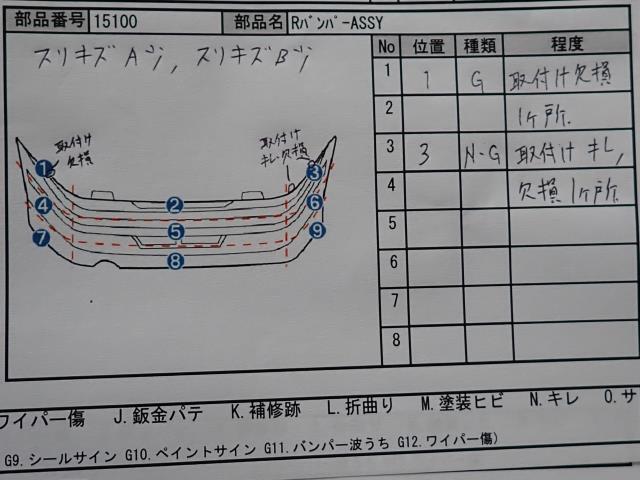 部品番号 15100 部品名 Rバンパ-ASSY
スリキズAツ, スリキズBツ
No 位置 種類 程度
1 1 G 取付け欠損
2 1ヶ所.
3 3 N-G 取付けキレ,
4 欠損1ヶ所.
5
6
7
8
取付け
欠損
取付け
キレ欠損
1
2
3
4
5
6
7
8
9
ワイパー傷 J.鈑金パテ K.補修跡 L.折曲り M.塗装ヒビ N.キレ O.サ
G9.シールサイン G10.ペイントサイン G11.バンパー波うち G12.ワイパー傷)